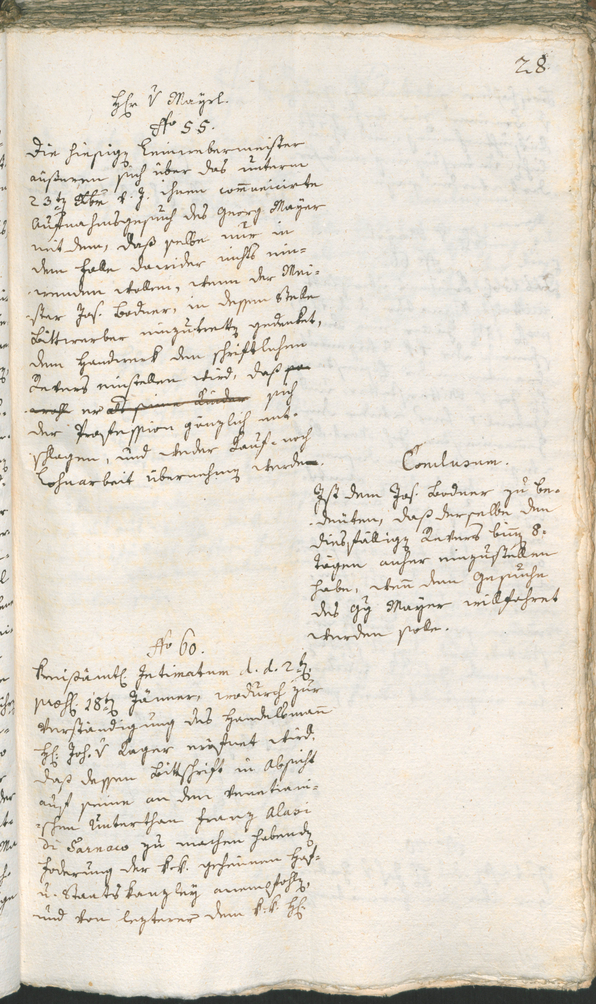 28
H̅r v̅ Mayrl.
No 55.
Die hiesige Leinwebermeister
äußeren sich über das unterm
23ten Xbris v. J. ihnen com̅unicirte
Aufnahmsgesuch des Georg Mayer
mit dem, daß selbe nur in
dem Falle dawider nichts ein-
wenden wollen, wenn der Mei-
ster Jos. Bodner, in dessen Stelle
Bittwerber einzutretten gedenket,
dem Handwerk den schriftlichen
Revers einstellen wird, daß
er sich
der Profession gänzlich ent-
schlagen, und weder Kauf- noch
Lohnarbeit übernehmen werde.
Conclusum.
Ist dem Jos. Bodner zu be-
deuten, daß derselbe den
diesfälligen Revers binnen 8.
Tägen anher einzustellen
habe, wenn dem Gesuche
des Gg Mayer willfahret
werden solle.
No 60.
Kreisämtl. Intimatum d. d. 2ten
præs. 18ten Jänner, wodurch zur
Verständigung des Handelsmann
H: Joh. v Lager eröfnet wird,
daß dessen Bittschrift in Absicht
auf seine an den Venetiani-
schen Unterthan Franz Alari
di Farnaro zu machen habende
Foderung der k. k. geheimen Hof-
u. Staatskanzley anempfohlen,
und von lezterer dem k. k. H: